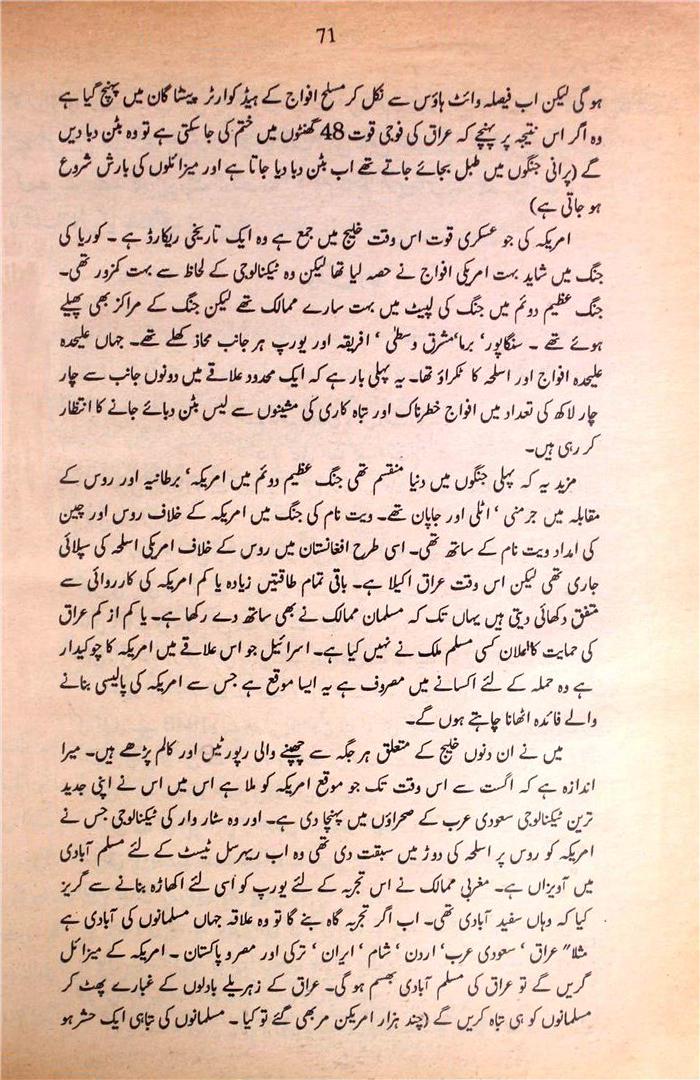 71
ہو گی لیکن اب فیصلہ وائٹ ہاؤس سے نکل کر مسلح افواج کے ہیڈ کوارٹر پینٹاگان میں پہنچ گیا ہے
وہ اگر اس نتیجہ پر پہنچے کہ عراق کی فوجی قوت 48 گھنٹوں میں ختم کی جا سکتی ہے تو وہ بٹن دبا دیں
گے (پرانی جنگوں میں طبل بجائے جاتے تھے اب بٹن دبا دیا جاتا ہے اور میزائلوں کی بارش شروع
ہو جاتی ہے)
امریکہ کی جو عسکری قوت اس وقت خلیج میں جمع ہے وہ ایک تاریخی ریکارڈ ہے ۔ کوریا کی
جنگ میں شاید بہت امریکی افواج نے حصہ لیا تھا لیکن وہ ٹیکنالوجی کے لحاظ سے بہت کمزور تھی۔
جنگ عظیم دوئم میں جنگ کی لپیٹ میں بہت سارے ممالک تھے لیکن جنگ کے مراکز بھی پھیلے
ہوئے تھے ۔ سنگاپور‘ برما‘مشرق وسطیٰ ‘ افریقہ اور یورپ ہر جانب محاذ کھلے تھے۔ جہاں علیحدہ
علیحدہ افواج اور اسلحہ کا ٹکراؤ تھا۔ یہ پہلی بار ہے کہ ایک محدود علاقے میں دونوں جانب سے چار
چار لاکھ کی تعداد میں افواج خطرناک اور تباہ کاری کی مشینوں سے لیس بٹن دبائے جانے کا انتظار
کر رہی ہیں۔
مزید یہ کہ پہلی جنگوں میں دنیا منقسم تھی جنگ عظیم دوئم میں امریکہ‘ برطانیہ اور روس کے
مقابلہ میں جرمنی ‘ اٹلی اور جاپان تھے۔ ویت نام کی جنگ میں امریکہ کے خلاف روس اور چین
کی امداد ویت نام کے ساتھ تھی۔ اسی طرح افغانستان میں روس کے خلاف امریکی اسلحہ کی سپلائی
جاری تھی لیکن اس وقت عراق اکیلا ہے۔ باقی تمام طاقتیں زیادہ یا کم امریکہ کی کارروائی سے
متفق دکھائی دیتی ہیں یہاں تک کہ مسلمان ممالک نے بھی ساتھ دے رکھا ہے۔ یا کم از کم عراق
کی حمایت کا اعلان کسی مسلم ملک نے نہیں کیا ہے۔ اسرائیل جو اس علاقے میں امریکہ کا چوکیدار
ہے وہ حملہ کے لئے اکسانے میں مصروف ہے یہ ایسا موقع ہے جس سے امریکہ کی پالیسی بنانے
والے فائدہ اٹھانا چاہتے ہوں گے۔
میں نے ان دنوں خلیج کے متعلق ہر جگہ سے چھپنے والی رپورٹیں اور کالم پڑھے ہیں۔ میرا
اندازہ ہے کہ اگست سے اس وقت تک جو موقع امریکہ کو ملا ہے اس میں اس نے اپنی جدید
ترین ٹیکنالوجی سعودی عرب کے صحراؤں میں پہنچا دی ہے۔ اور وہ سٹار وار کی ٹیکنالوجی جس نے
امریکہ کو روس پر اسلحہ کی دوڑ میں سبقت دی تھی وہ اب ریہرسل ٹیسٹ کے لئے مسلم آبادی
میں آویزاں ہے۔ مغربی ممالک نے اس تجربہ کے لئے یورپ کو اُسی لئے اکھاڑہ بنانے سے گریز
کیا کہ وہاں سفید آبادی تھی۔ اب اگر تجربہ گاہ بنے گا تو وہ علاقہ جہاں مسلمانوں کی آبادی ہے
مثلا" عراق ‘ سعودی عرب‘ اردن ‘ شام ‘ ایران ‘ ترکی اور مصر و پاکستان ۔ امریکہ کے میزائل
گریں گے تو عراق کی مسلم آبادی بھسم ہو گی۔ عراق کے زہریلے بادلوں کے غبارے پھٹ کر
مسلمانوں کو ہی تباہ کریں گے (چند ہزار امریکن مر بھی گئے تو کیا ۔ مسلمانوں کی تباہی ایک حشر ہو